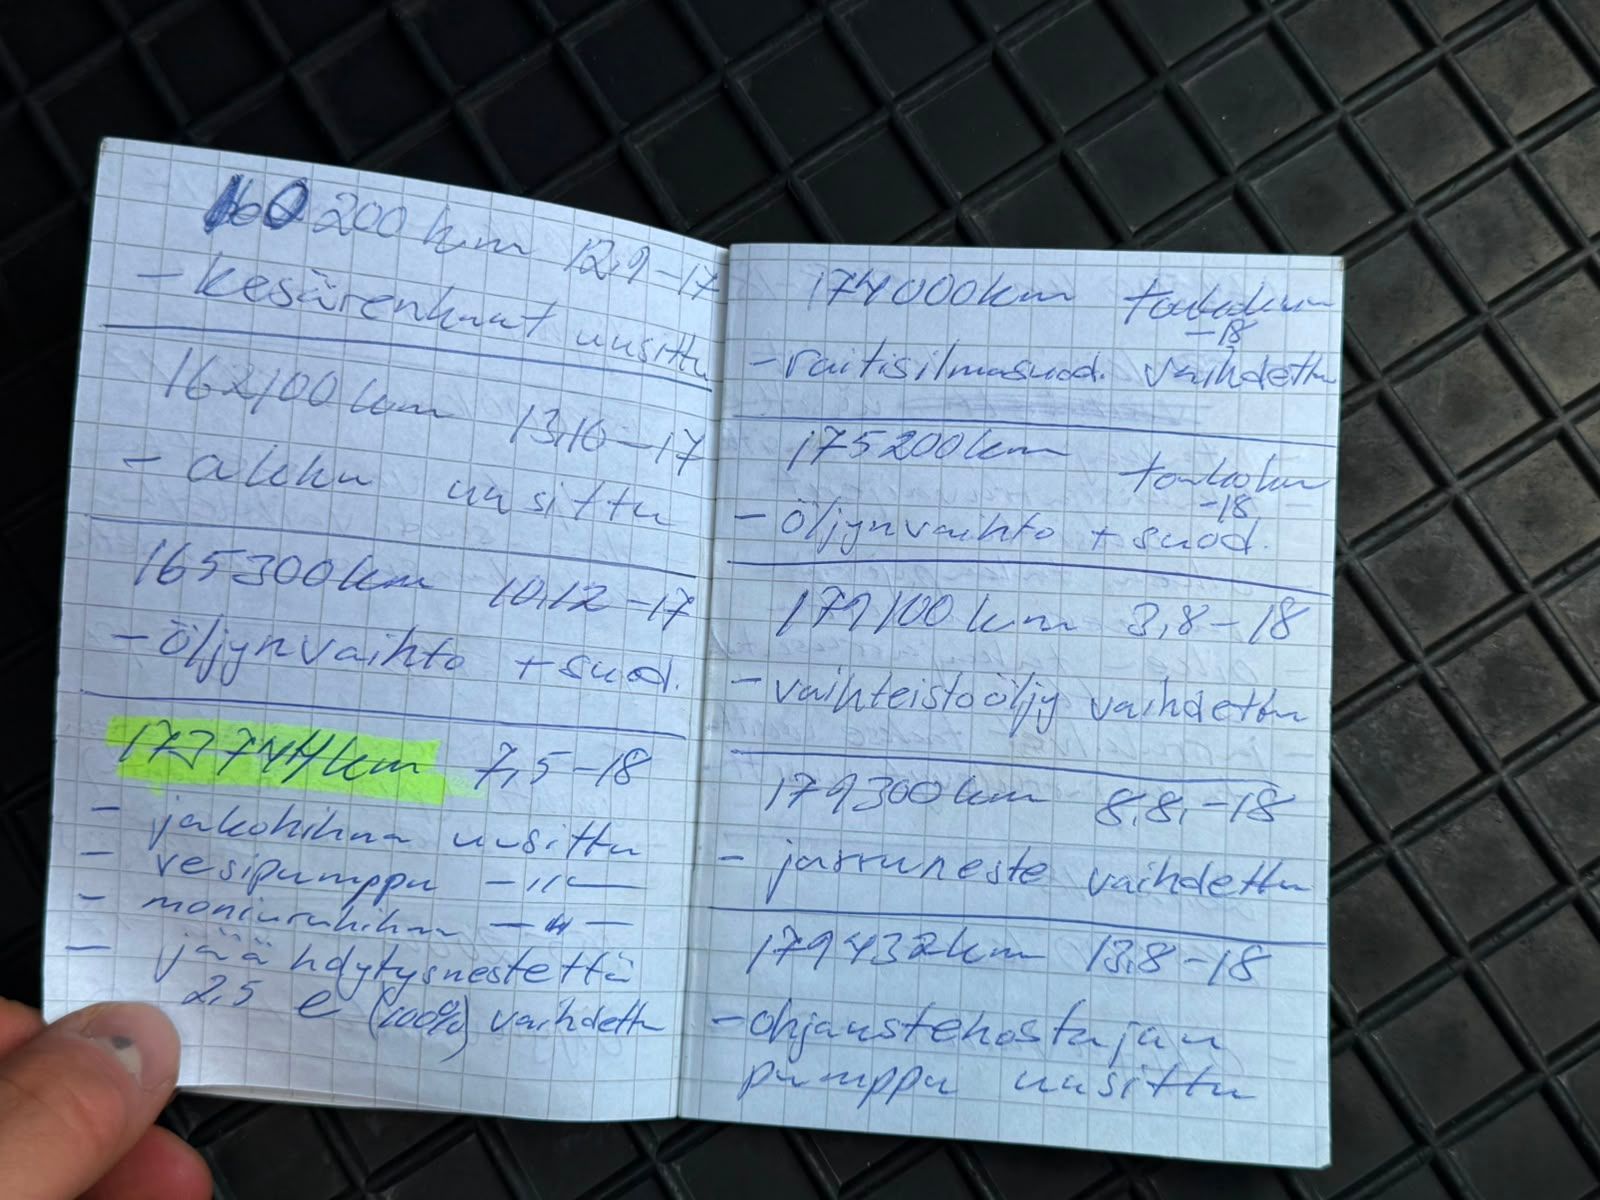 160200 km 12,9-17
- kesärenkaat uusittu
162100 km 13,10-17
- akku uusittu
165300 km 10,12-17
- öljynvaihto + suod.
173744 km 7,5-18
- jakohihna uusittu
- vesipumppu -"-
- moniurahihna -"-
- jäähdytysnestettä
2,5 l (100%) vaihdettu
174000 km toukokuu
-18
- raitisilmasuod. vaihdettu
175200 km toukokuu
-18
- öljynvaihto + suod.
179100 km 3,8-18
- vaihteistoöljy vaihdettu
179300 km 8,8,-18
- jarruneste vaihdettu
179432 km 13,8-18
- ohjaustehostajan
pumppu uusittu